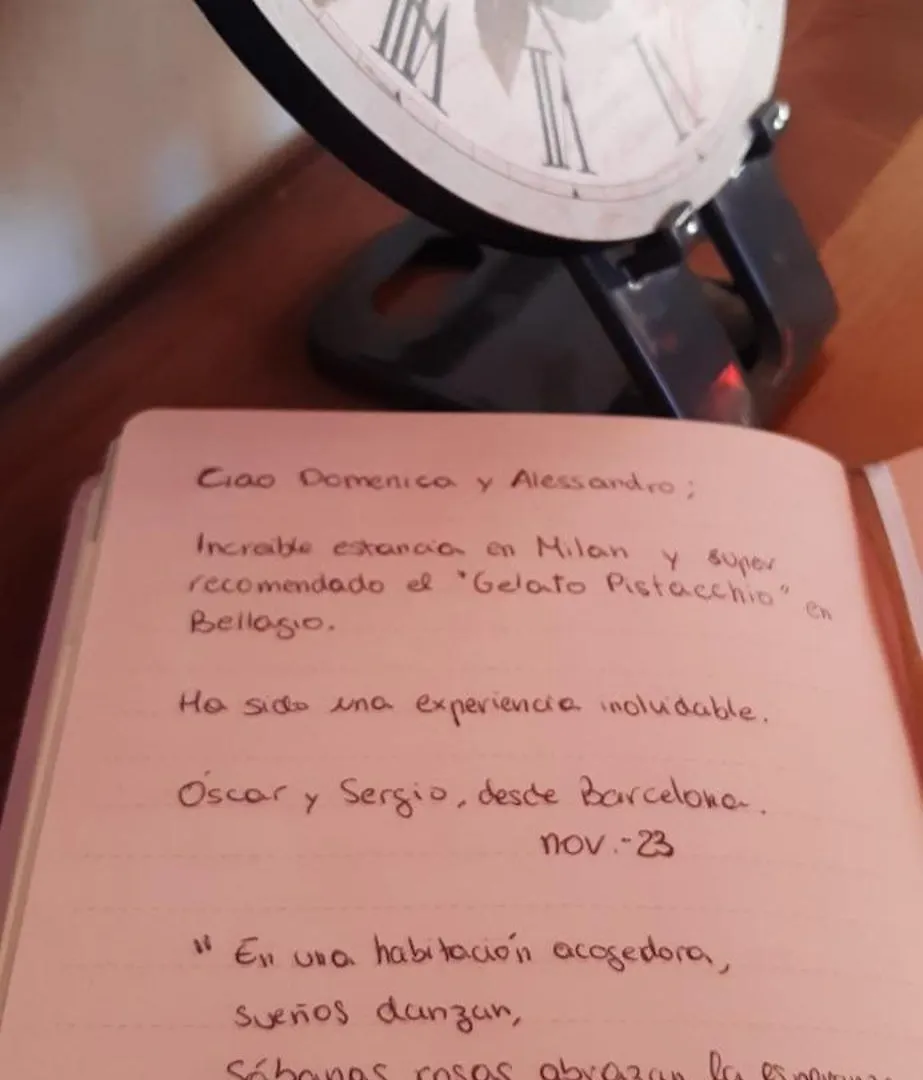 VIII
VII
Ciao Domenica y Alessandro;
Increible estancia en Milan y super
recomendado el "Gelato Pistacchio" en
Bellagio.
Ha sido una experiencia inoluidable.
Óscar y Sergio, desde Barcelona.
nov.-23
" En una habitación acogedora,
sueños danzan,
Sábanas rosas abrazan la